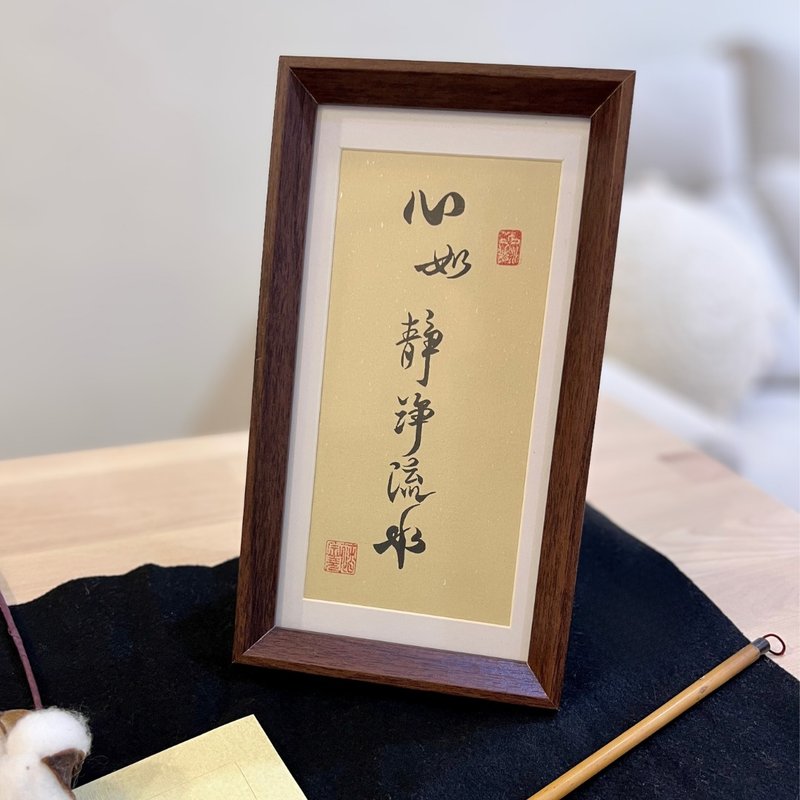 心如靜淨流水